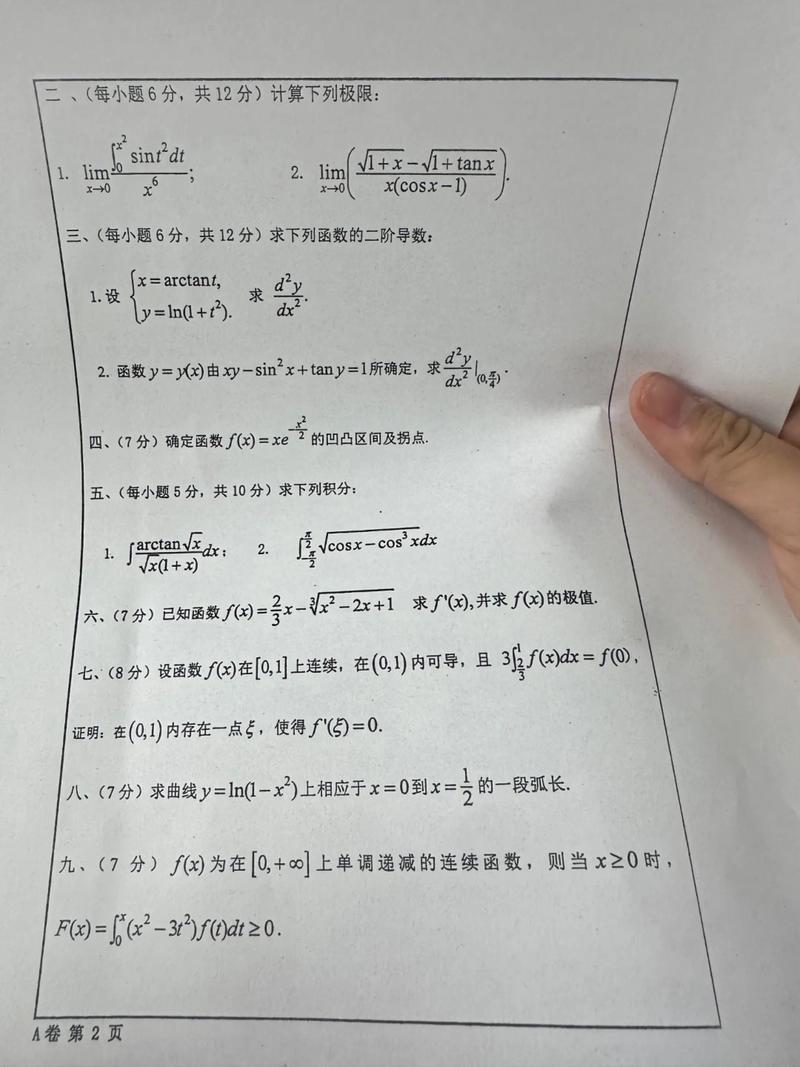 二、（每小题6分，共12分）计算下列极限：
1. $\lim_{x\to 0}\frac{\int_0^{x^2}\sin t^2 dt}{x^6}$; 2. $\lim_{x\to 0}\left(\frac{\sqrt{1+x}-\sqrt{1+\tan x}}{x(\cos x-1)}\right)$.
三、（每小题6分，共12分）求下列函数的二阶导数：
1.设 $\begin{cases}x=\arctan t,\\y=\ln(1+t^2).\end{cases}$ 求 $\frac{d^2y}{dx^2}$.
2. 函数 $y=y(x)$ 由 $xy-\sin^2 x+\tan y=1$ 所确定，求 $\frac{d^2y}{dx^2}|_{(0,\frac{\pi}{4})}$.
四、（7分）确定函数 $f(x)=xe^{-\frac{x^2}{2}}$ 的凹凸区间及拐点.
五、（每小题5分，共10分）求下列积分：
1. $\int\frac{\arctan\sqrt{x}}{\sqrt{x}(1+x)}dx$; 2. $\int_{-\frac{\pi}{2}}^{\frac{\pi}{2}}\sqrt{\cos x-\cos^3 x}dx$
六、（7分）已知函数 $f(x)=\frac{2}{3}x-\sqrt[3]{x^2-2x+1}$ 求 $f'(x)$,并求 $f(x)$ 的极值.
七、（8分）设函数 $f(x)$ 在 $[0,1]$ 上连续，在 $(0,1)$ 内可导，且 $3\int_{\frac{2}{3}}^{1}f(x)dx=f(0)$,
证明：在 $(0,1)$ 内存在一点 $\xi$，使得 $f'(\xi)=0$.
八、（7分）求曲线 $y=\ln(1-x^2)$ 上相应于 $x=0$ 到 $x=\frac{1}{2}$ 的一段弧长.
九、（7 分） $f(x)$ 为在 $[0,+\infty]$ 上单调递减的连续函数，则当 $x\geq 0$ 时，
$F(x)=\int_0^x(x^2-3t^2)f(t)dt\geq 0$.
A卷 第 2 页